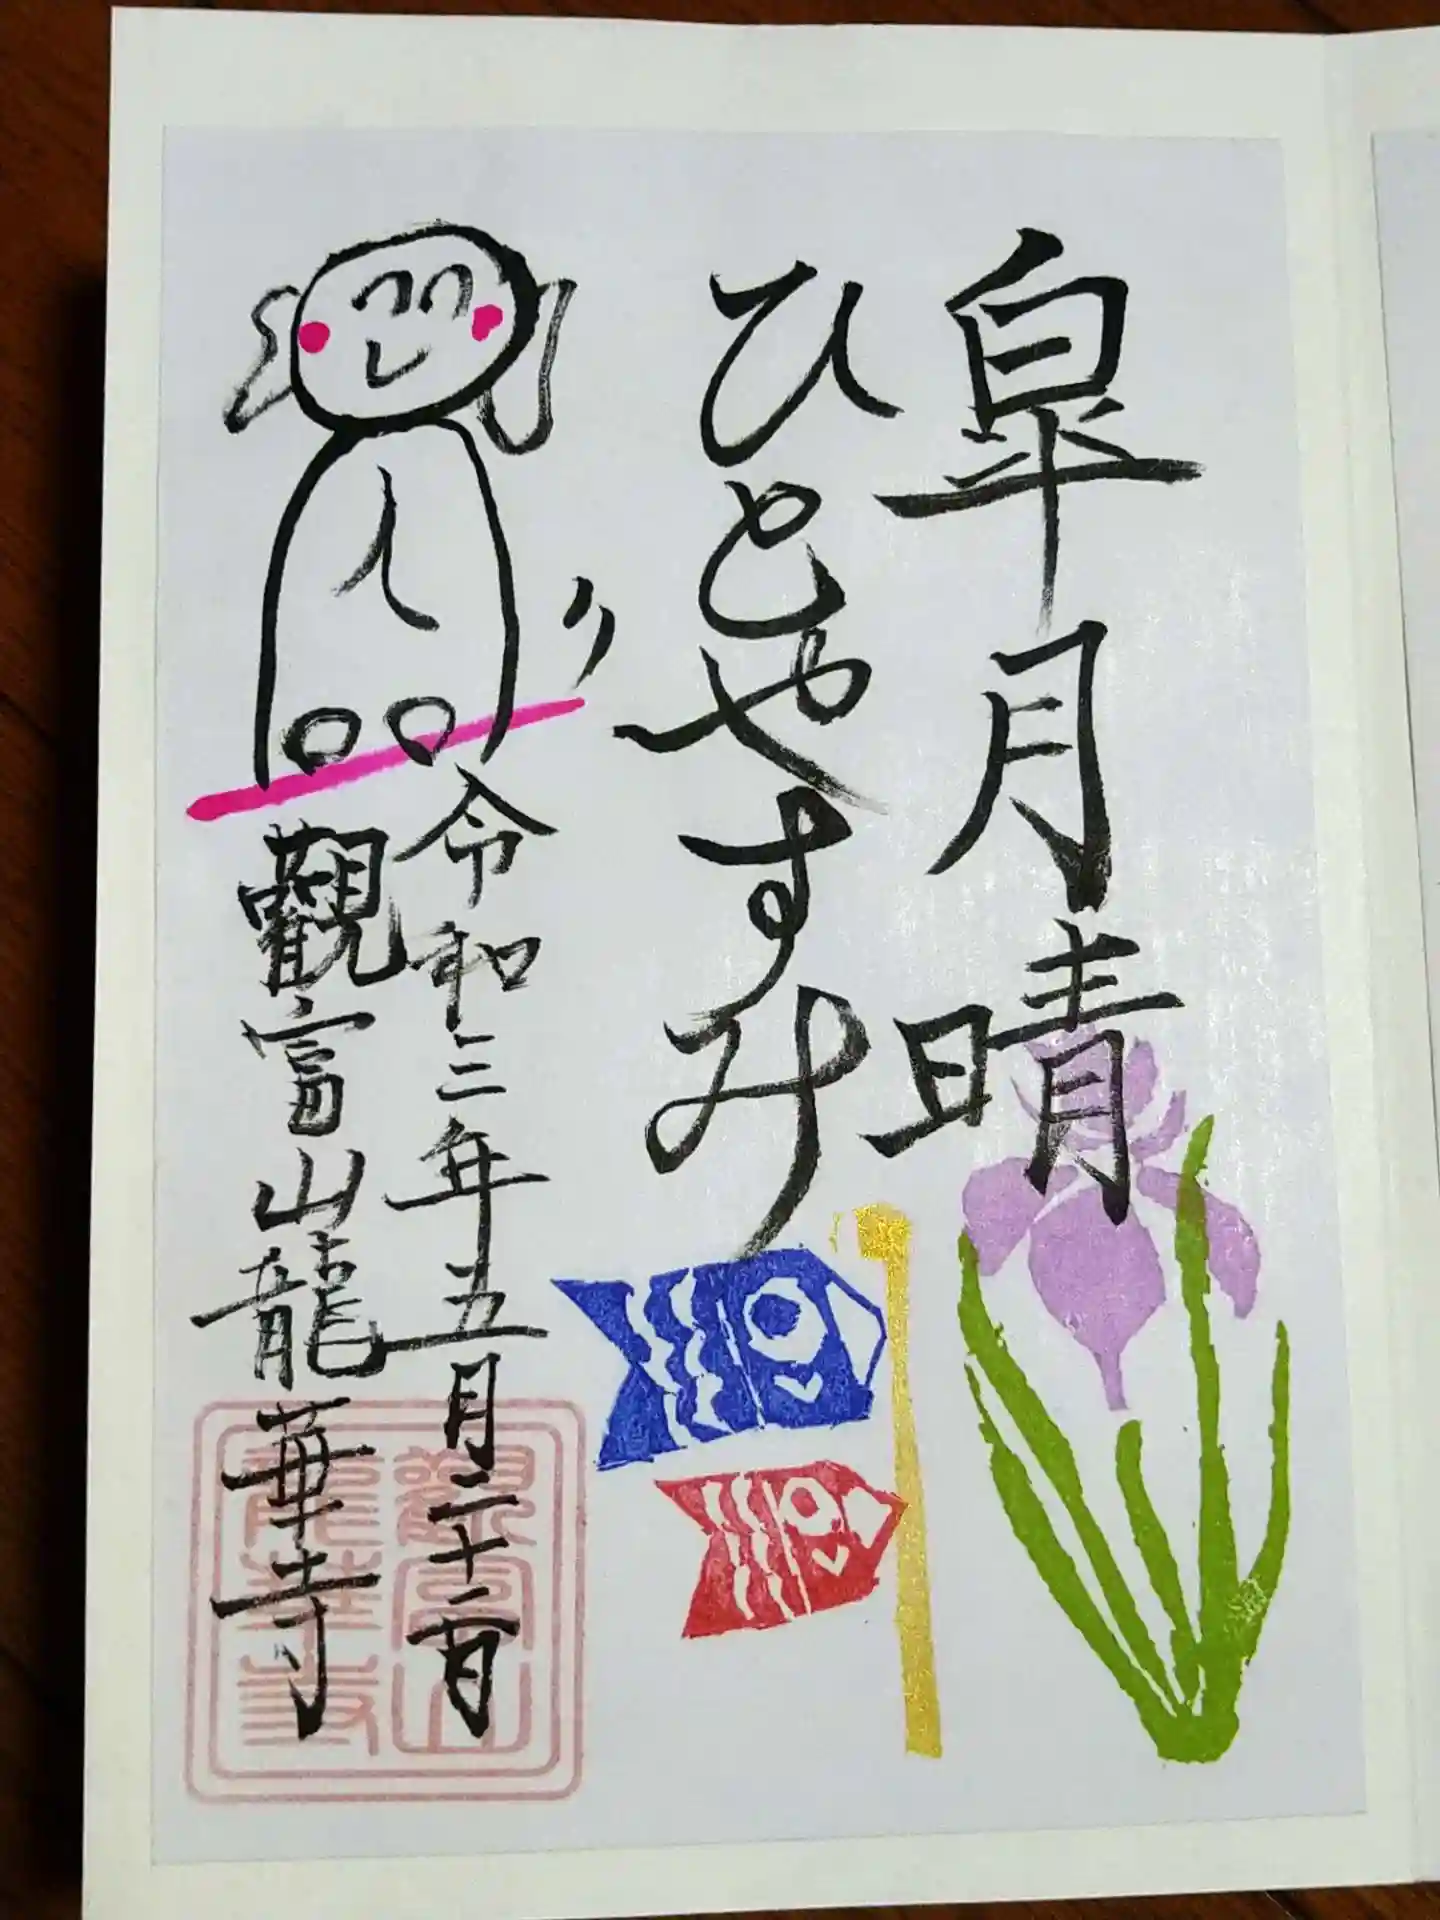 皐月晴
ひとやすみ
令和三年五月二十二日
觀富山龍華寺
觀富山
龍華寺